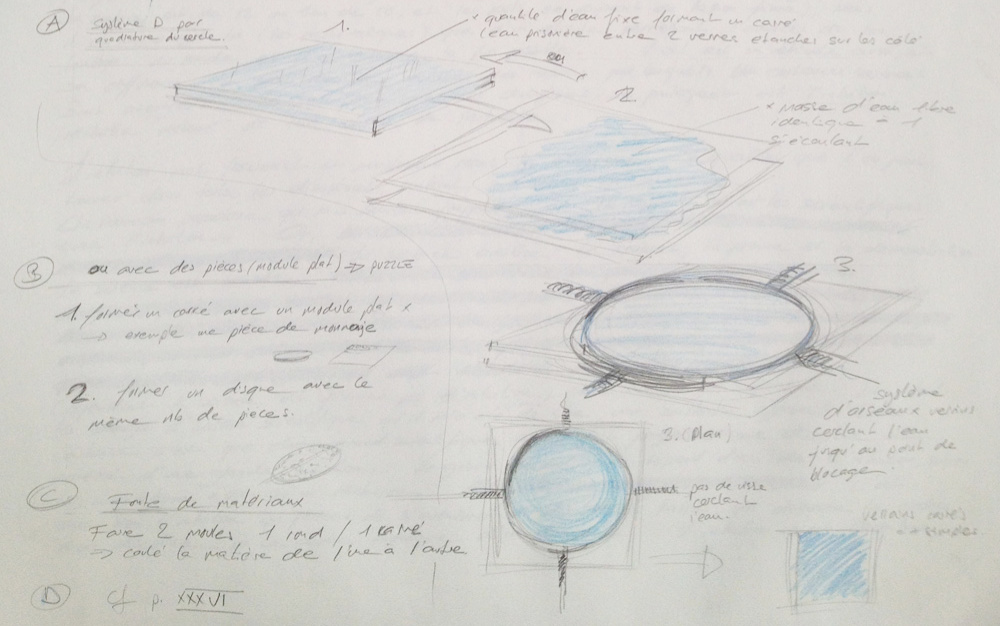 A
système D par
quadrature du cercle.
1.
x quantité d'eau fixe formant un carré
l'eau prisonière entre 2 verres étanches sur les côté
2.
x Masse d'eau libre
identique à 1
s'écoulant
B
ou avec des pièces (module plat) ⇒ PUZZLE
1. formés un carré avec un module plat x
→ exemple une pièce de monnaie
2. formés un disque avec le
même nb de pièces.
3.
système
cerclant l'eau
jusqu'au point de
blocage.
3. (Plan)
pas de visse
cerclant
l'eau.
C
Fonte de matériaux
Faire 2 moules 1 rond / 1 carré
⇒ coulé la matière de l'une à l'autre
D
cf p. XXXVI